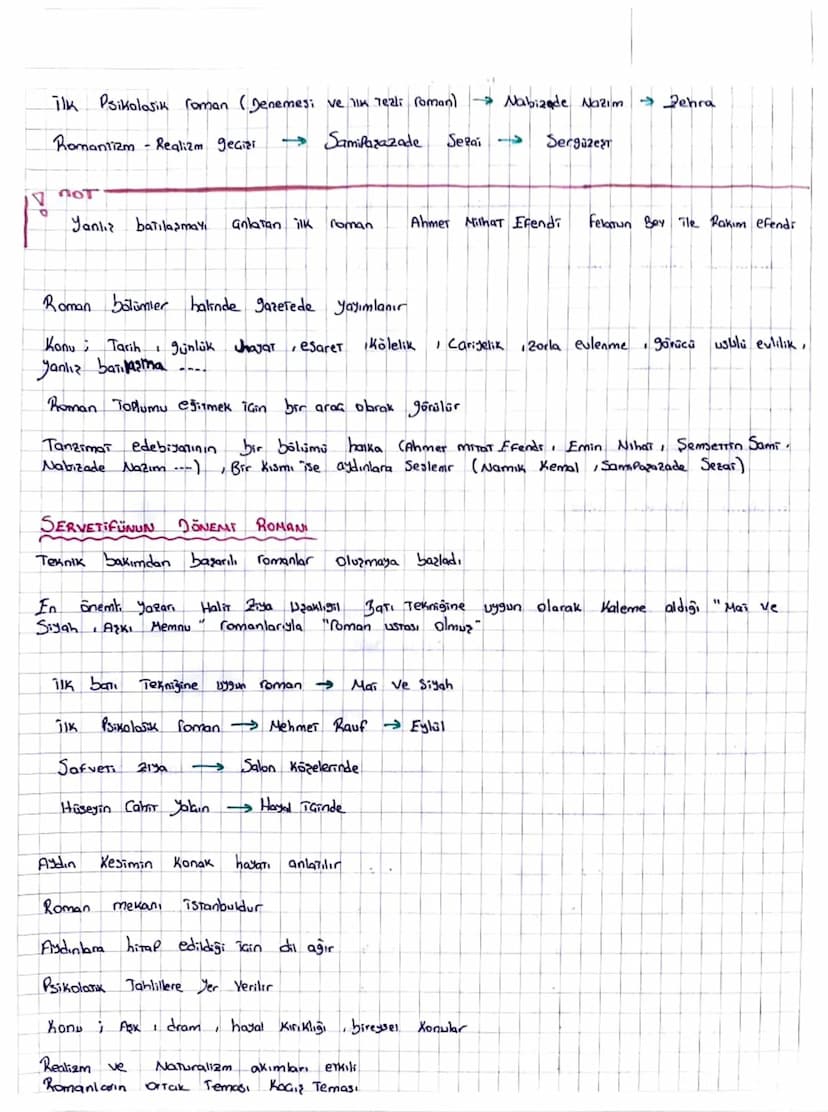 İlk Psikolojik roman (Denemesi ve ilk Tezli roman) → Nabizade Nazım → Zehra
Romantizm - Realizm geçişi → Samipaşazade Sezai → Sergüzeşt
! NOT
Yanlız batılaşmayı anlatan ilk roman Ahmet Mithat Efendi Felatun Bey ile Rakım efendi
Roman bölümler halinde gazetede yayımlanır
Konu ; Tarih , günlük hayat , esaret , kölelik , Cariyelik , zorla evlenme , görücü usülü evlilik ,
yanlız batılaşma ....
Roman Toplumu eğitmek için bir araç olarak görülür
Tanzimat edebiyatının bir bölümü halka (Ahmet mitat Efendi , Emin Nihat , Şemsettin Sami ,
Nabizade Nazım ---) , Bir kısmı ise aydınlara Seslenir (Namık Kemal , Samipaşazade Sezai)
SERVETİFÜNUN DÖNEMİ ROMANI
Teknik bakımdan başarılı romanlar oluşmaya başladı
En önemli yazarı Halit Ziya Uşaklıgil Batı Tekniğine uygun olarak kaleme aldığı "Mai ve
Siyah , Aşkı Memnu" romanlarıyla "roman ustası olmuş"
ilk batı Tekniğine uygun roman → Mai ve Siyah
ilk Psikolojik roman → Mehmet Rauf → Eylül
Safveti Ziya → Salon Köşelerinde
Hüseyin Cahit Yalçın → Hayal içinde
Aydın Kesimin Konak hayatı anlatılır
Roman mekanı istanbuldur
Aydınlara hitap edildiği için dil ağır
Psikolojik Tahlillere Yer Verilir
Konu ; Aşk , dram , hayal kırıklığı , bireysel konular
Realizm ve Naturalizm akımları etkili
Romanların ortak Teması Kaçış Teması